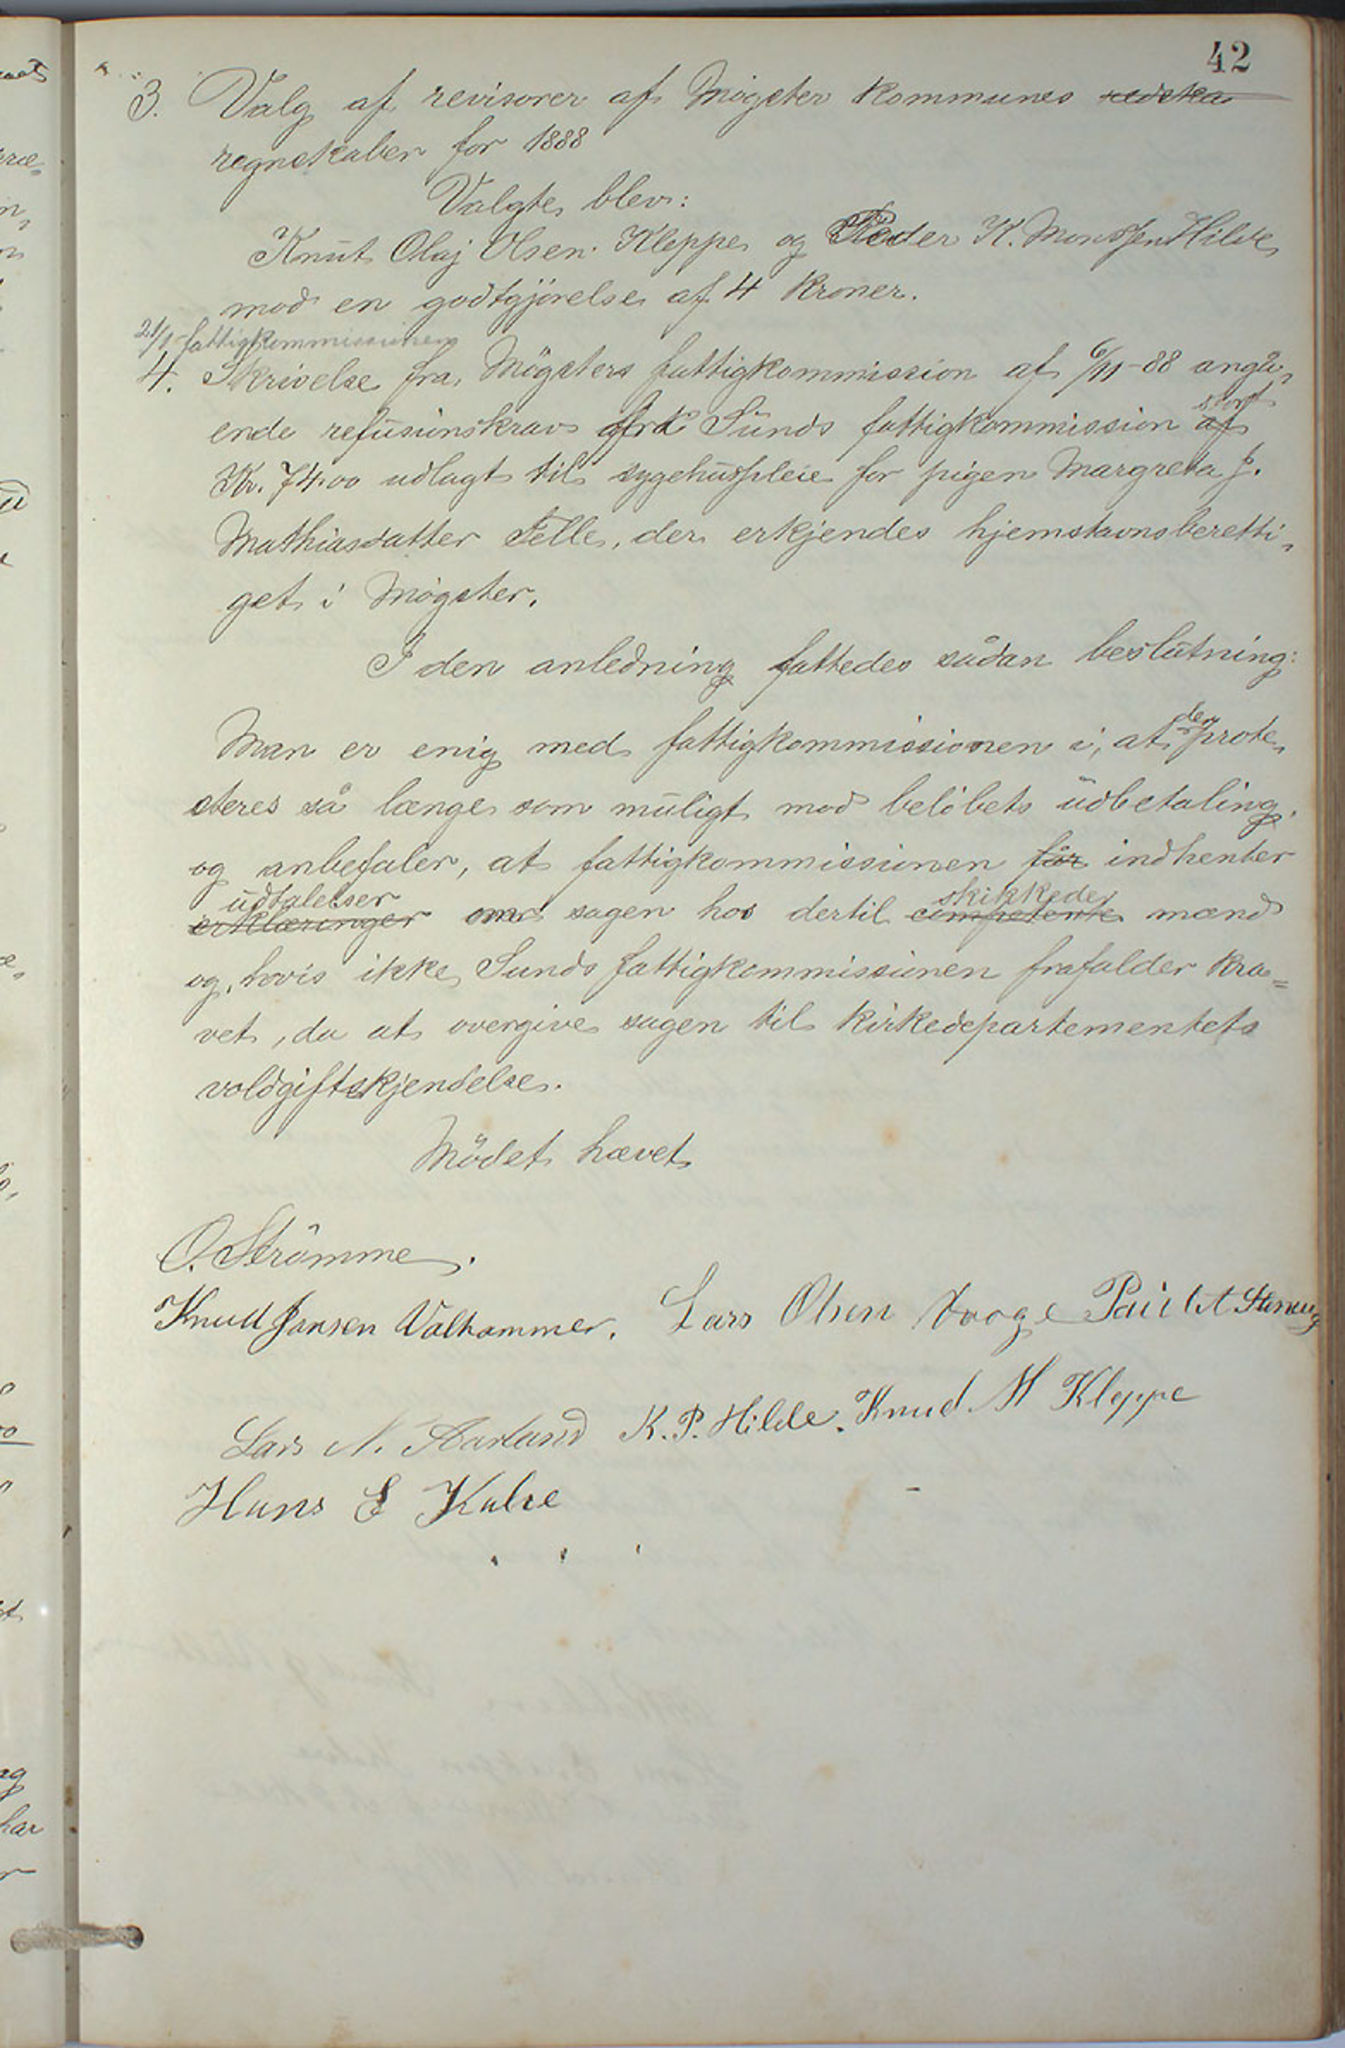 42
3. Valg af revisorer af Møgster kommunes
regnskaber for 1888
Valgte blev:
Knut Olaj Olsen Kleppe og Peder K. Monssen Hilde
mod en godtgjörelse af 4 kroner.
21/1 fattigkommissionen
4. Skrivelse fra Mögsters fattigkommission af 6/11-88 angå-
stort
ende refusionskrav fra Sunds fattigkommission af
Kr. 74.00 udlagt til sygehuspleie for pigen Margreta J.
Mathiasdatter Telle, der erkjendes hjemstavnsberetti-
get i Møgster.
I den anledning fattedes sådan beslutning:
der
Man er enig med fattigkommissionen i, at prote-
steres så længe som muligt mod beløbets udbetaling,
og anbefaler, at fattigkommissionen får indhenter
udtalelser skikkeder
erklæringer om sagen hos dertil competente mænd
og, hvis ikke Sunds fattigkommissionen frafalder kra=
vet, da at overgive sagen til kirkedepartementets
voldgiftskjendelse.
Mödet hævet
O. Strömme.
Knud Jansen Valhammer. Lars Olsen Vaage Paul
Lars N. Aarland K. P. Hilde. Knud M Kleppe
Hans E Kalve